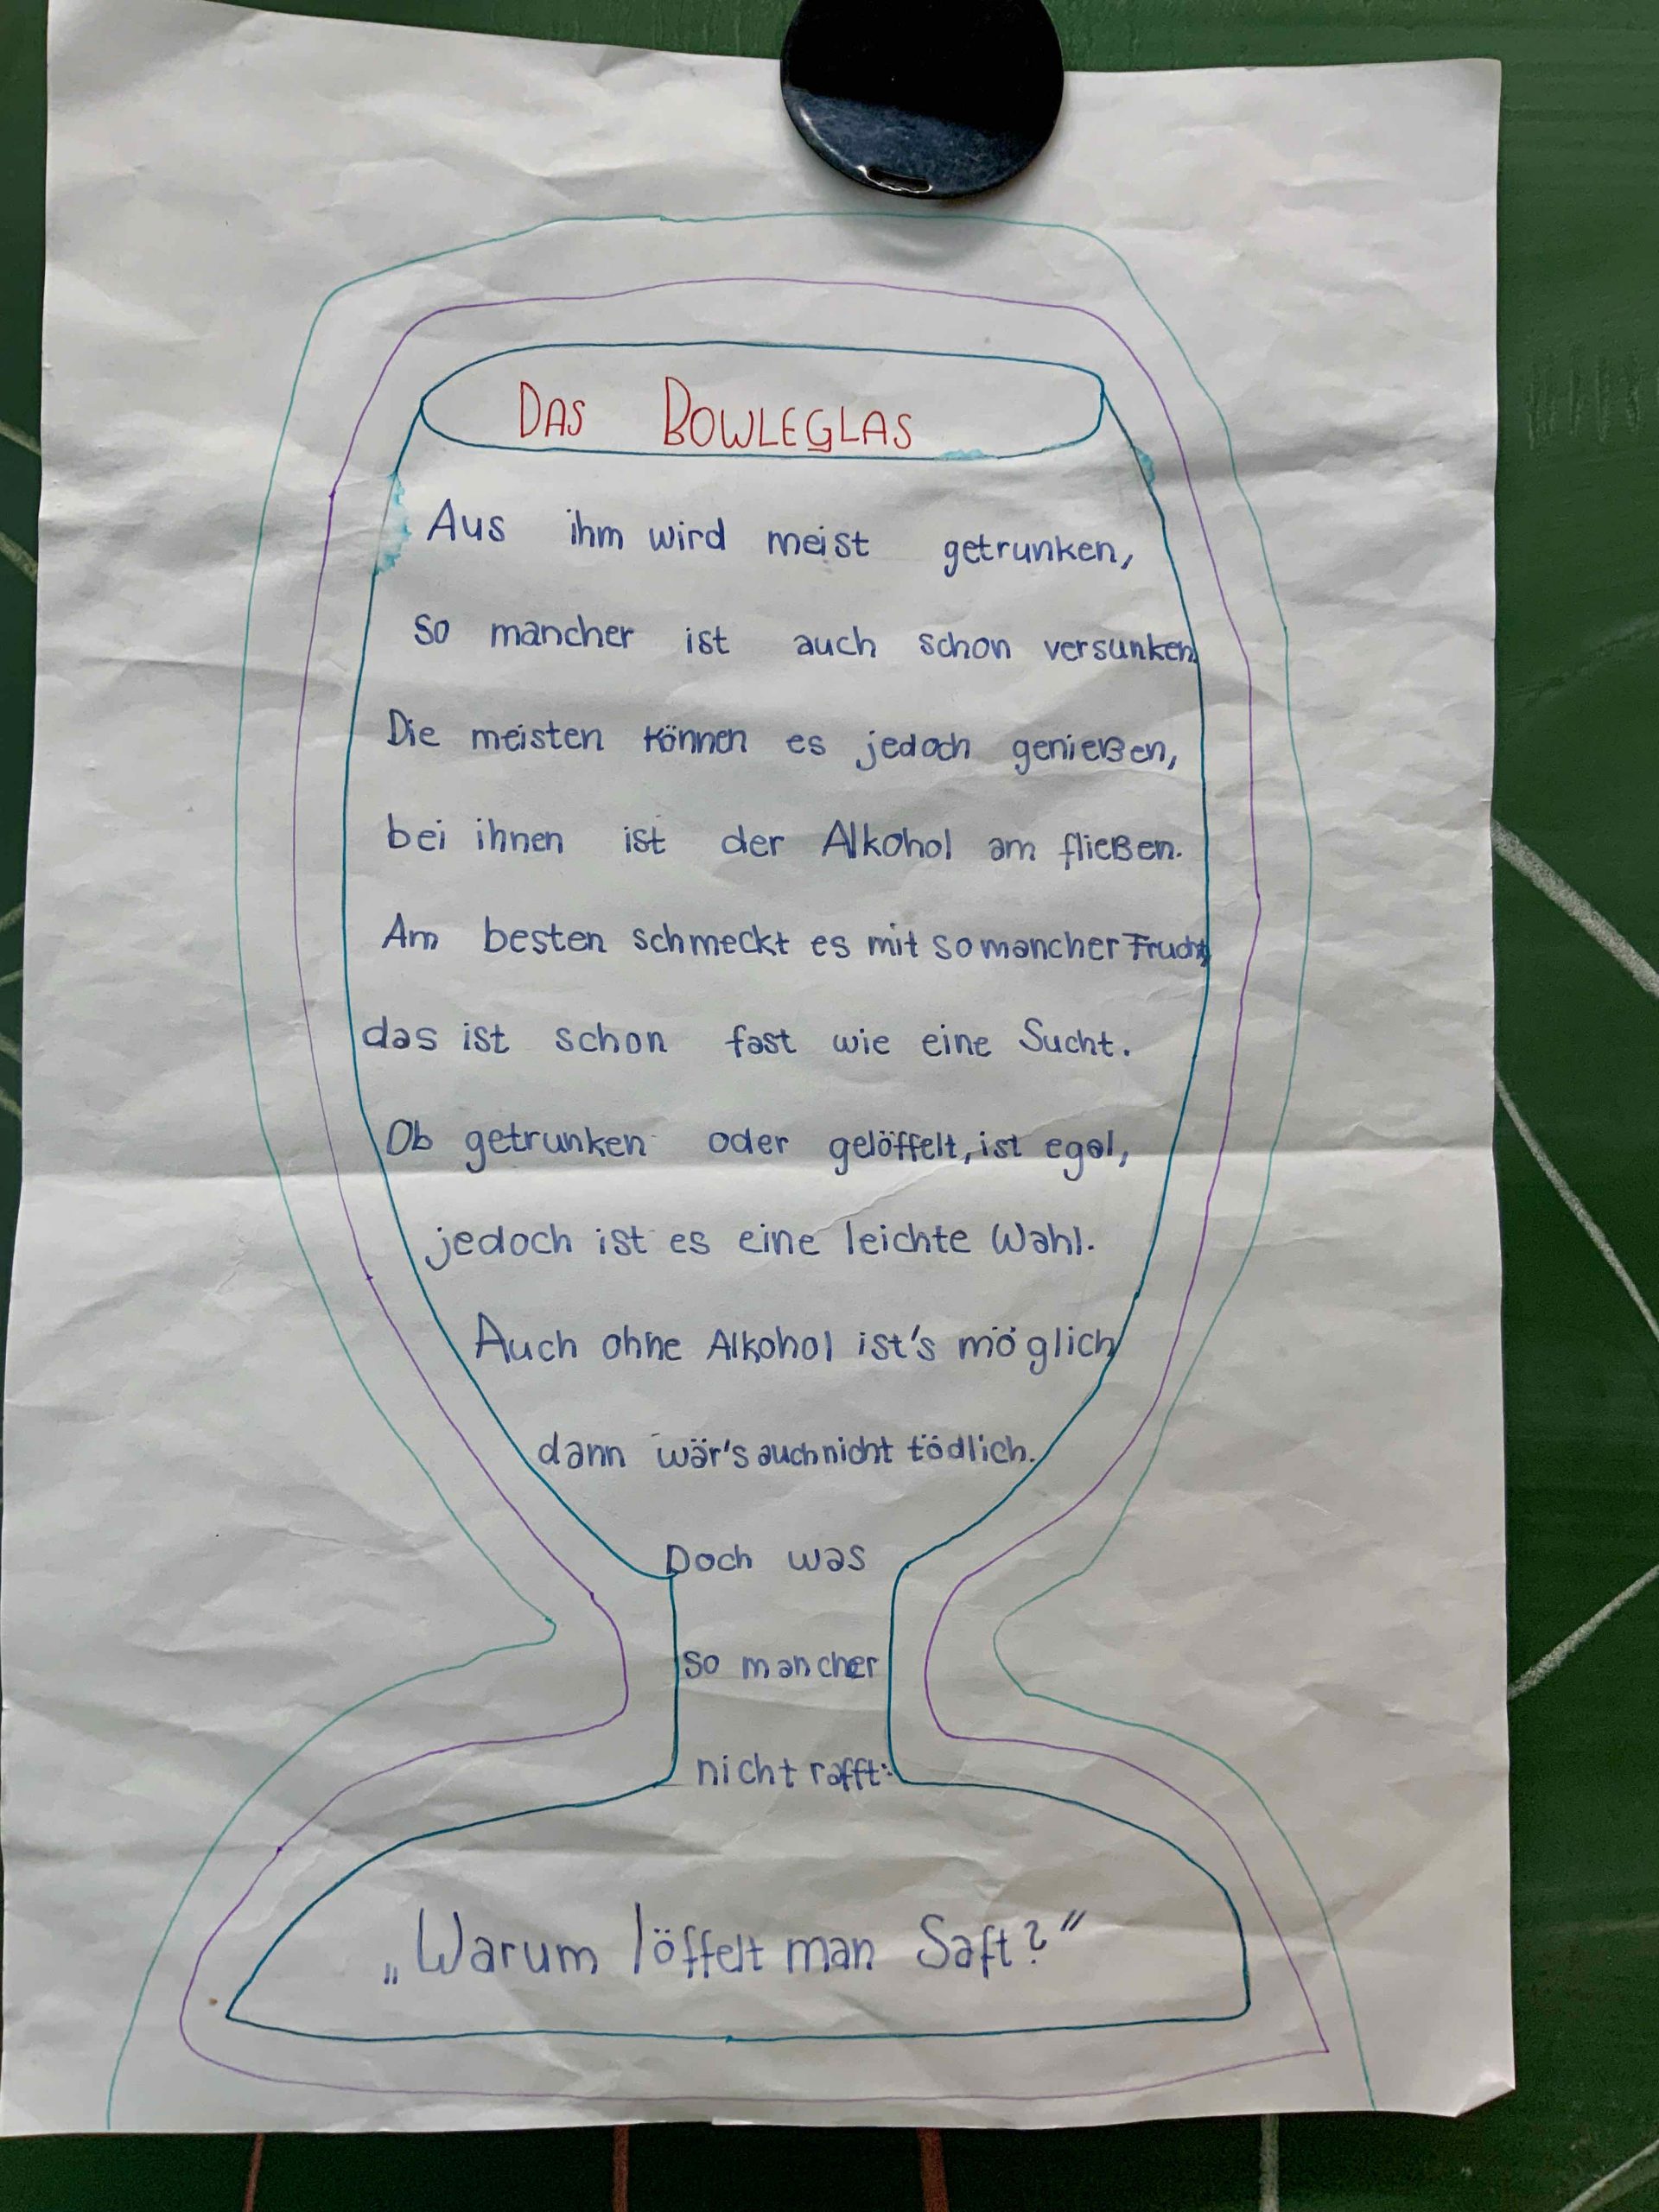 DAS BOWLEGLAS
Aus ihm wird meist getrunken,
so mancher ist auch schon versunken.
Die meisten können es jedoch genießen,
bei ihnen ist der Alkohol am fließen.
Am besten schmeckt es mit so mancher Frucht,
das ist schon fast wie eine Sucht.
Ob getrunken oder gelöffelt, ist egal,
jedoch ist es eine leichte Wahl.
Auch ohne Alkohol ist's möglich
dann wär's auch nicht tödlich.
Doch was
so mancher
nicht rafft:
„Warum löffelt man Saft?"